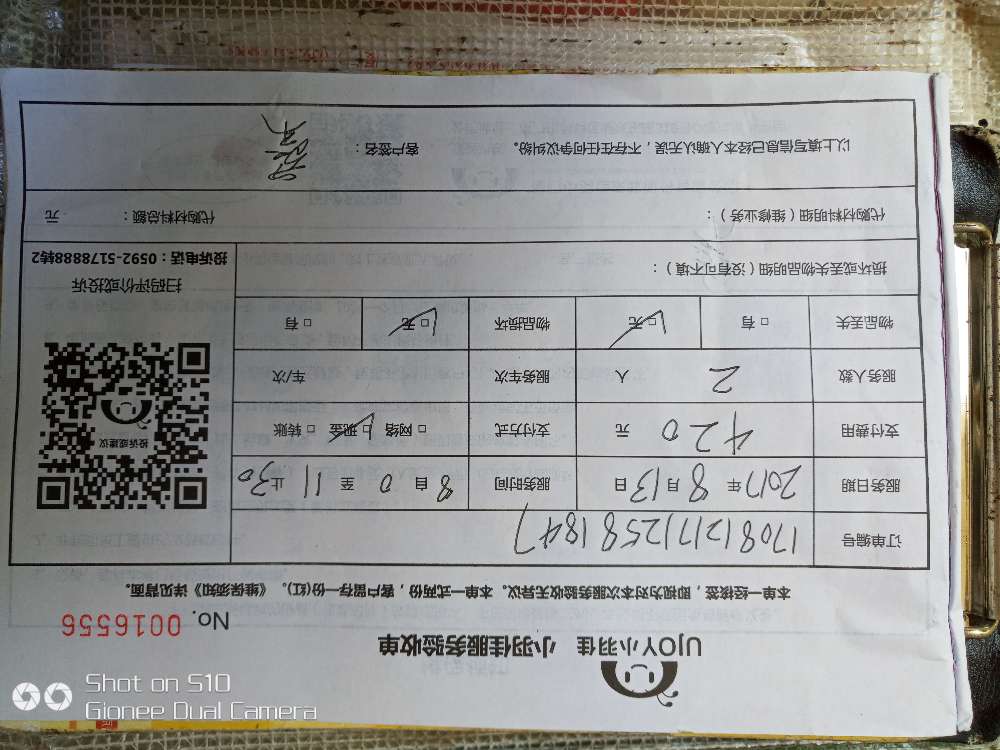 UJOY小羽佳 小羽佳服务验收单
No. 0016556
本单一经核签，即视为对本次服务验收、无异议。本单一式两份，客户留存一份(红)。《维保须知》详见背面。
订单编号 1708121712581847
服务日期 2017年8月13日 服务时间 8自0至11止30
支付费用 420元 支付方式 □网络 ☑现金 □转账
服务人数 2人 服务车次 车/次
物品丢失 □有 ☑无 物品损坏 ☑无 □有
投诉或建议
扫码评价或投诉
投诉电话：0592-5178888转2
损坏或丢失物品明细（没有可不填）：
代购材料明细（维修业务）： 代购材料总额： 元
以上填写信息已经本人确认无误，不存在任何争议纠纷。 客户签名：
Shot on S10
Gionee Dual Camera